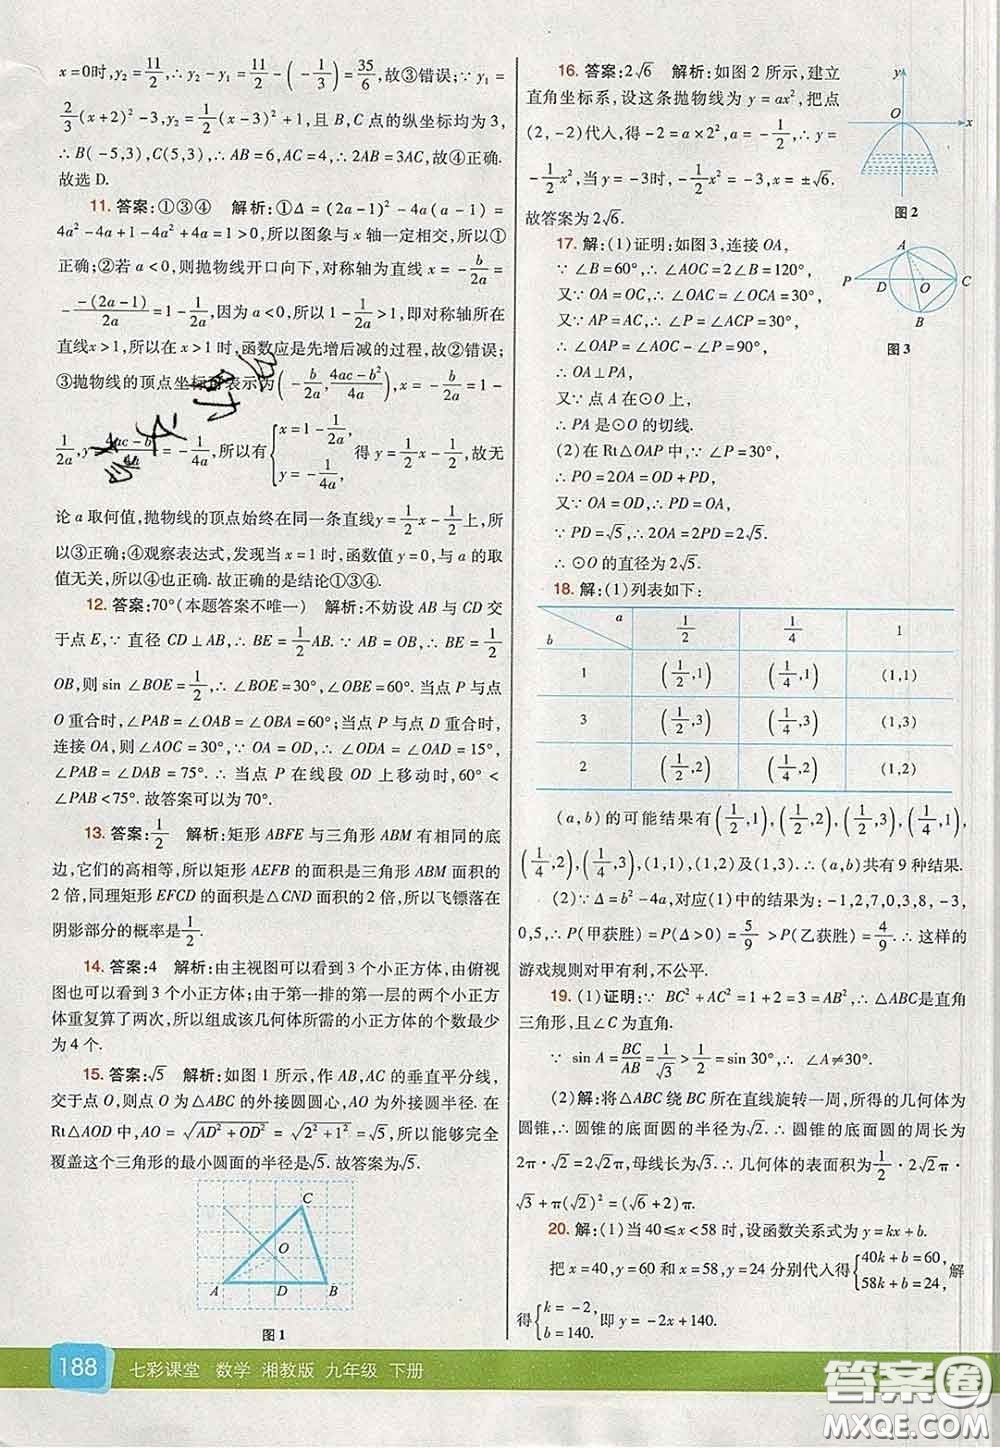 x=0时,y₂=11/2,∴y₂-y₁=11/2-(-1/3)=35/6,故③错误;∵y₁=
2/3(x+2)²-3,y₂=1/2(x-3)²+1,且B,C点的纵坐标均为3,
∴B(-5,3),C(5,3),∴AB=6,AC=4,∴2AB=3AC,故④正确.
故选D.
11.答案:①③④ 解析:①Δ=(2a-1)²-4a(a-1)=
4a²-4a+1-4a²+4a=1>0,所以图象与x轴一定相交,所以①
正确;②若a<0,则抛物线开口向下,对称轴为直线x=-b/2a=
-(-(2a-1))/2a=1-1/2a,因为a<0,所以1-1/2a>1,即对称轴所在
直线x>1,所以在x>1时,函数应是先增后减的过程,故②错误;
③抛物线的顶点坐标可表示为(-b/2a,(4ac-b²)/4a),x=-b/2a=1-
1/2a,y=(4ac-b²)/4a=-1/4a,所以有{x=1-1/2a, y=-1/4a, 得y=1/2x-1/2,故无
论a取何值,抛物线的顶点始终在同一条直线y=1/2x-1/2上,所
以③正确;④观察表达式,发现当x=1时,函数值y=0,与a的取
值无关,所以④也正确.故正确的是结论①③④.
12.答案:70°(本题答案不唯一) 解析:不妨设AB与CD交
于点E,∵直径CD⊥AB,∴BE=1/2AB.∵AB=OB,∴BE=1/2
OB,则sin∠BOE=1/2,∴∠BOE=30°,∠OBE=60°.当点P与点
O重合时,∠PAB=∠OAB=∠OBA=60°;当点P与点D重合时,
连接OA,则∠AOC=30°,∵OA=OD,∴∠ODA=∠OAD=15°,
∠PAB=∠DAB=75°.∴当点P在线段OD上移动时,60°<
∠PAB<75°.故答案可以为70°.
13.答案:1/2 解析:矩形ABFE与三角形ABM有相同的底
边,它们的高相等,所以矩形AEFB的面积是三角形ABM面积的
2倍,同理矩形EFCD的面积是△CND面积的2倍,所以飞镖落在
阴影部分的概率是1/2.
14.答案:4 解析:由主视图可以看到3个小正方体,由俯视
图也可以看到3个小正方体;由于第一排的第一层的两个小正方
体重复算了两次,所以组成该几何体所需的小正方体的个数最少
为4个.
15.答案:√5 解析:如图1所示,作AB,AC的垂直平分线,
交于点O,则点O为△ABC的外接圆圆心,AO为外接圆半径.在
Rt△AOD中,AO=√(AD²+OD²)=√(2²+1²)=√5,所以能够完全
覆盖这个三角形的最小圆面的半径是√5.故答案为√5.
C
O
A D B
图1
16.答案:2√6 解析:如图2所示,建立
直角坐标系,设这条抛物线为y=ax²,把点
(2,-2)代入,得-2=a×2²,a=-1/2,∴y=
-1/2x²,当y=-3时,-1/2x²=-3,x=±√6.
故答案为2√6.
y
O x
图2
17.解:(1)证明:如图3,连接OA,
∵∠B=60°,∴∠AOC=2∠B=120°,
又∵OA=OC,∴∠OAC=∠OCA=30°,
又∵AP=AC,∴∠P=∠ACP=30°,
∴∠OAP=∠AOC-∠P=90°,
∴OA⊥PA,
又∵点A在⊙O上,
∴PA是⊙O的切线.
(2)在Rt△OAP中,∵∠P=30°,
∴PO=2OA=OD+PD,
又∵OA=OD,∴PD=OA,
∵PD=√5,∴2OA=2PD=2√5.
∴⊙O的直径为2√5.
A
P D O C
B
图3
18.解:(1)列表如下:
a b 1/2 1/4 1
1 (1/2,1) (1/4,1) (1,1)
3 (1/2,3) (1/4,3) (1,3)
2 (1/2,2) (1/4,2) (1,2)
(a,b)的可能结果有(1/2,1),(1/2,2),(1/2,3),(1/4,1),
(1/4,2),(1/4,3),(1,1),(1,2)及(1,3).∴(a,b)共有9种结果.
(2)∵Δ=b²-4a,对应(1)中的结果为:-1,2,7,0,3,8,-3,
0,5,∴P(甲获胜)=P(Δ>0)=5/9>P(乙获胜)=4/9.∴这样的
游戏规则对甲有利,不公平.
19.(1)证明:∵BC²+AC²=1+2=3=AB²,∴△ABC是直角
三角形,且∠C为直角.
∵sin A=BC/AB=1/√3>1/2=sin 30°,∴∠A≠30°.
(2)解:将△ABC绕BC所在直线旋转一周,所得的几何体为
圆锥,∴圆锥的底面圆的半径为√2.∴圆锥的底面圆的周长为
2π·√2=2√2π,母线长为√3.∴几何体的表面积为1/2·2√2π·
√3+π(√2)²=(√6+2)π.
20.解:(1)当40≤x<58时,设函数关系式为y=kx+b.
把x=40,y=60和x=58,y=24分别代入得{40k+b=60, 58k+b=24, 解
得{k=-2, b=140. 即y=-2x+140.
188 七彩课堂 数学 湘教版 九年级 下册
答案圈
MXQE.COM